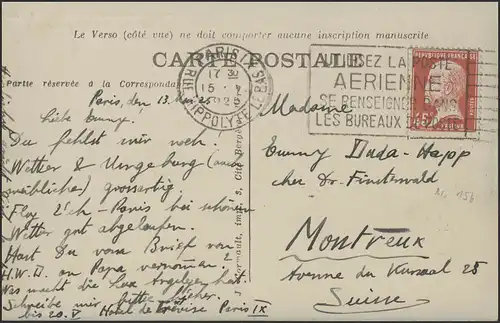 Le Verso (côté vue) ne doit comporter aucune inscription manuscrite
CARTE POSTALE
Partie réservée à la Correspondan
PARIS
17 30
15 · V
RUE HIPPOLYTE LEBAS
UTILISEZ LA POSTE
AERIENNE
SE RENSEIGNER DANS
LES BUREAUX DE
REPUBLIQUE FRANÇAISE
Paris, den 13. Mai 25
Liebe Emmy.
Du fehlst mir noch.
Wetter & Umgebung (auch
weibliches) grossartig.
Flog Z'ch - Paris bei schönem
Wetter gut abgelaufen.
Hast Du vom Brief von
H.W.D. an Papa vernommen?
Was macht die Lux Angelegenheit.
Schreibe mir bitte hieher.
bis 20.V Hotel de Trévise Paris IX
Madame
Emmy Dada-Happ
cher Dr. Finsterwald
Montreux
Avenue du Kursaal 25
Suisse